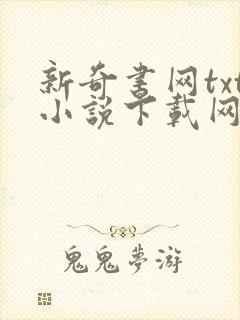 新奇書网txt
小説下載网
鬼鬼夢游